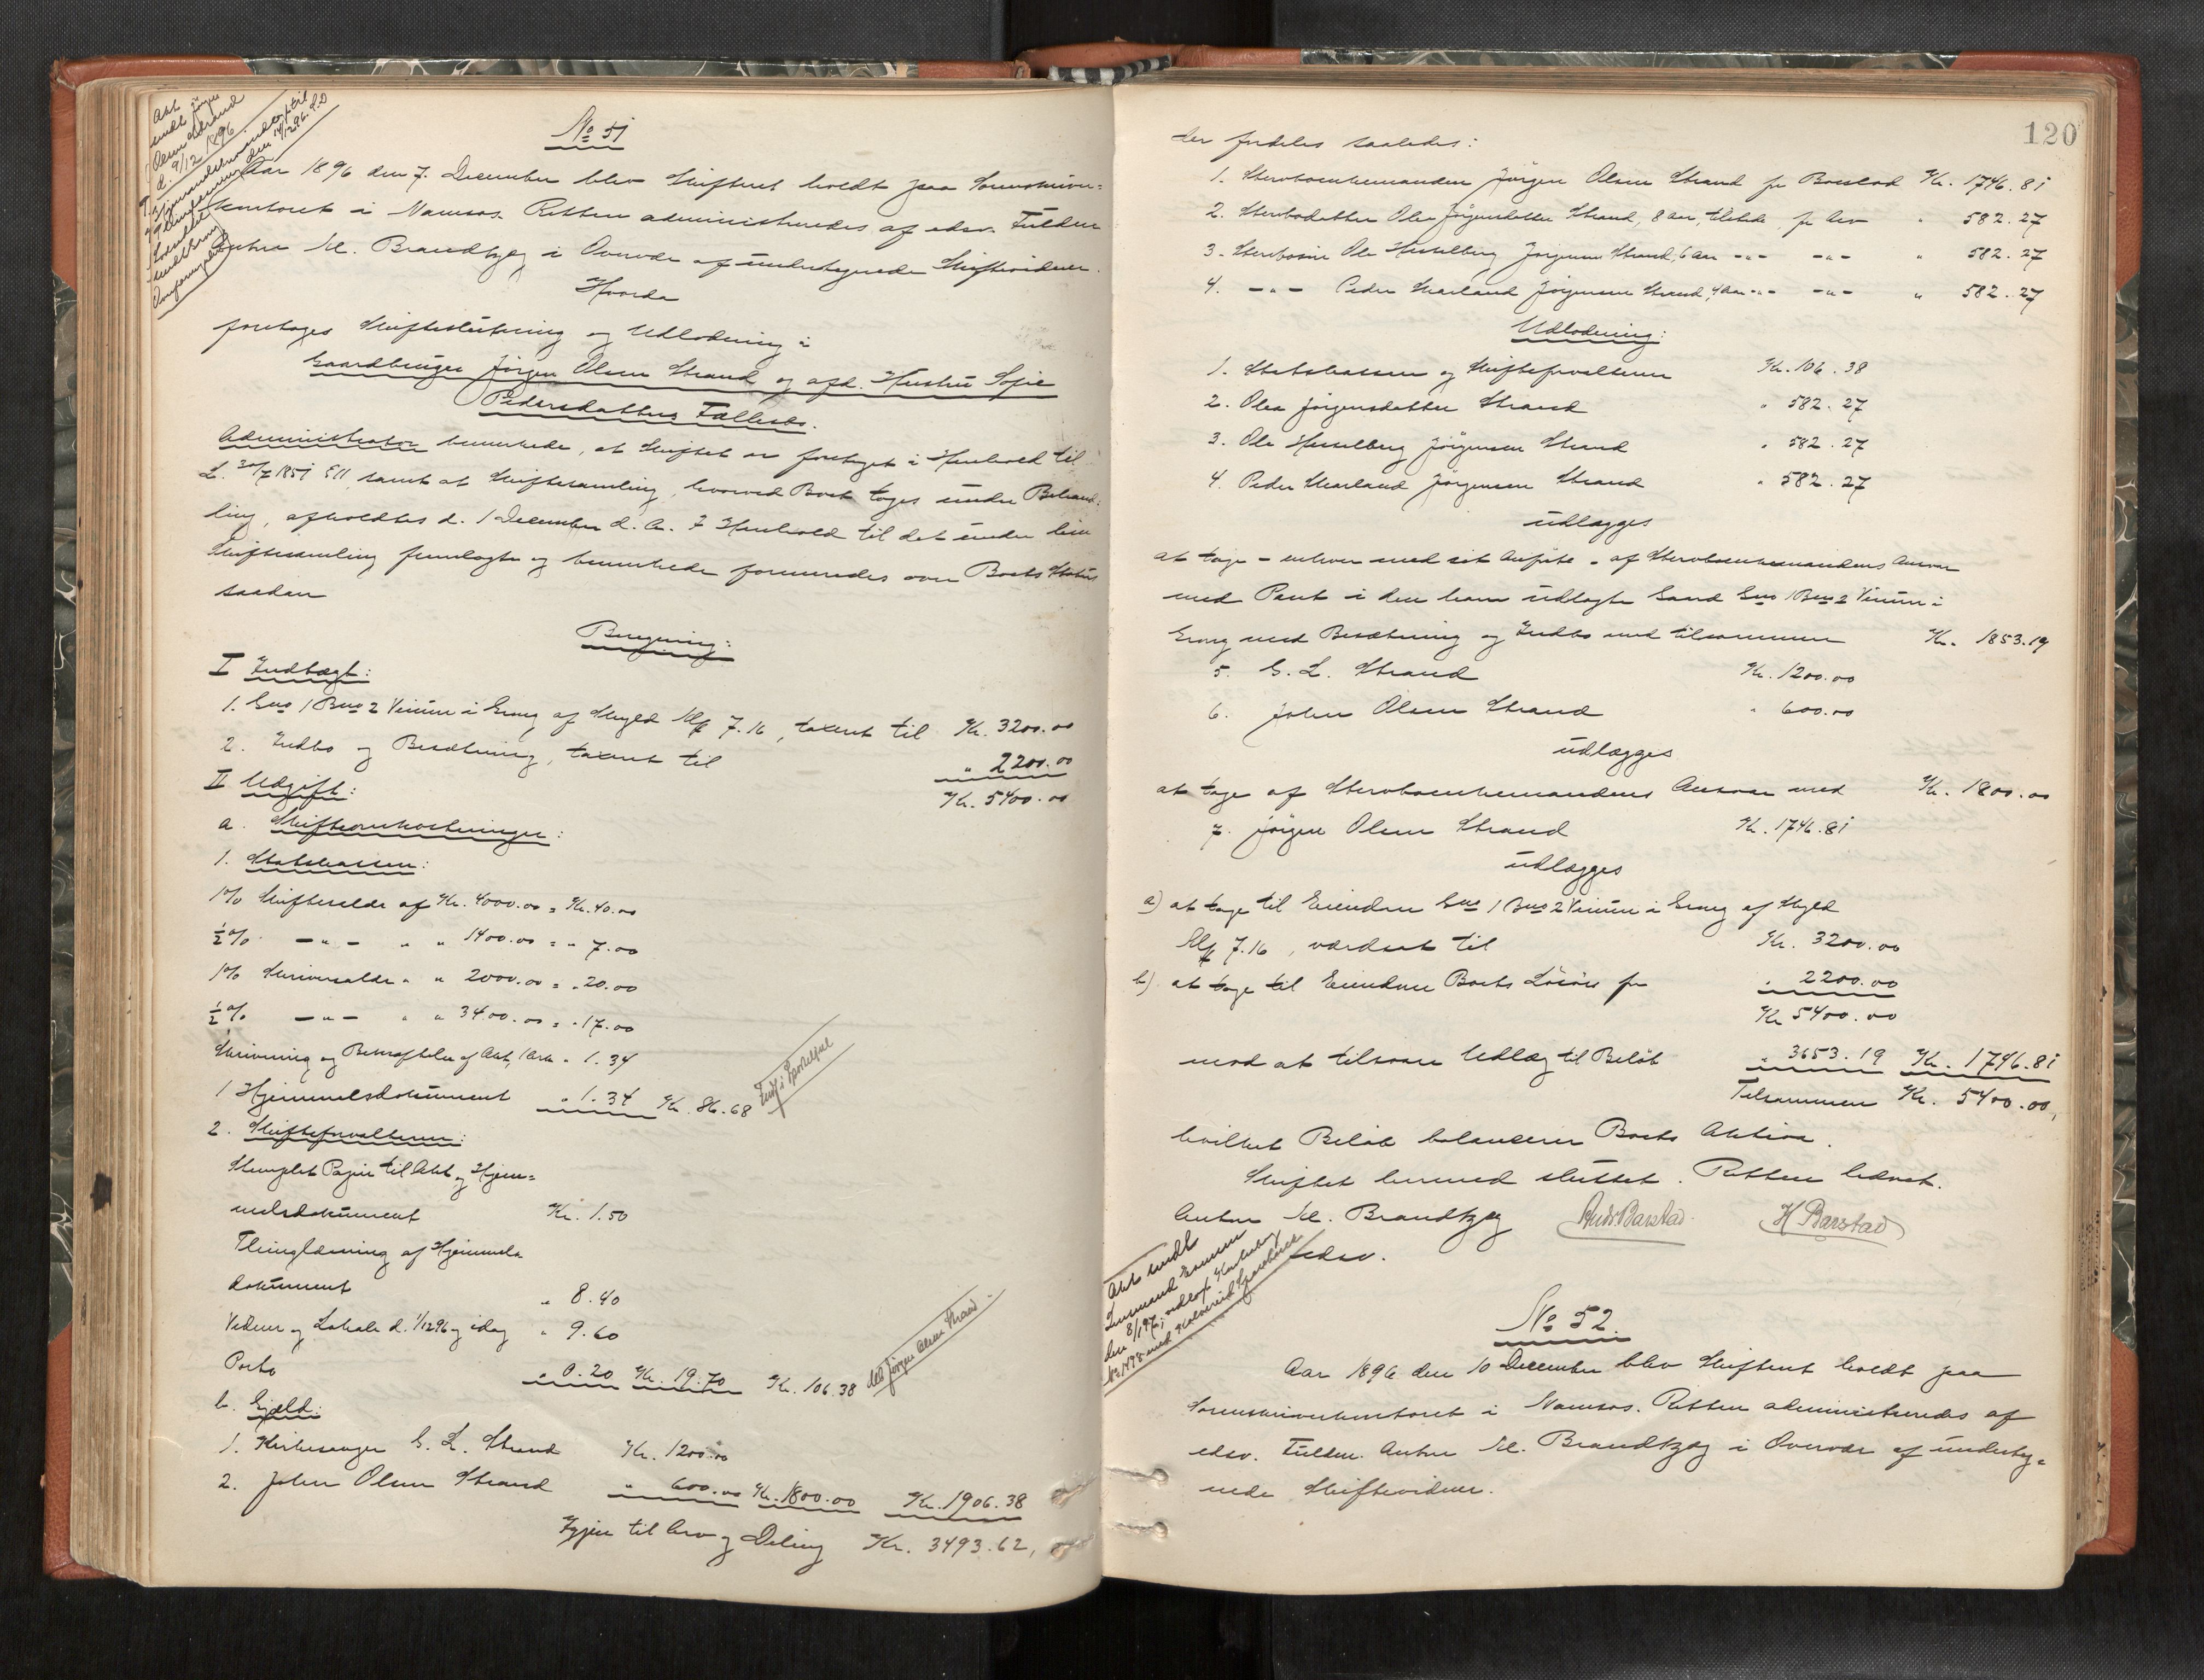 Akt
sendt Jørgen
Olsen Strand
d. 9/12 1896
No 51
Aar 1896 den 7. December blev Skifteret holdt paa Sorenskriver-
kontoret i Namsos. Retten administreredes af edsv. Fuldm.
Anton Kl. Brandtzæg i Overvær af undertegnede Skiftevidner.
Hvorda
foretoges Skifteslutning og Udlodning i
Gaardbruger Jörgen Olsen Strand og afd. Hustru Sofie
Pedersdatters Fællesbo.
Administrator bemærkede, at Skiftet er foretaget i Henhold til
L. 30/7 1851 § 11, samt at Skiftesamling, hvorved Boet toges under Behand-
ling, afholdtes d. 1 December d. A. I Henhold til det under hin
Skiftesamling fremlagte og bemærkede formeredes over Boets Status
saadan
Beregning:
I Indtægt:
1. Gno 1 Bno 2 Vium i Grong af Skyld Mk 7.16, taxeret til Kr. 3200.00
2. Indbo og Besætning, taxeret til " 2200.00
Kr. 5400.00
II Udgift:
a. Skifteomkostninger:
1. Statskassen:
1% Skifteselde af Kr. 4000.00 = Kr. 40.00
½% -"- " " 1400.00 = " 7.00
1% Skriversalær " " 2000.00 = " 20.00
½% -"- " " 3400.00 = " 17.00
Skrivning og Bekræftelse af Akt, 1 Ark " 1.34
1 Hjemmelsdokument " 1.34 Kr. 86.68
2. Skifteforvalteren:
Stemplet Papir til Akt og Hjem-
melsdokument Kr. 1.50
Thinglæsning af Hjemmels-
dokument " 8.40
Vidner og Lokale d. 1/12 96 og idag " 9.60
Porto " 0.20 Kr. 19.70 Kr. 106.38
b. Gjæld:
1. Kirkesanger G. L. Strand Kr. 1200.00
2. John Olsen Strand " 600.00 Kr. 1800.00 Kr. 1906.38
Igjen til Arv og Deling Kr. 3493.62,
120
der fordeles saaledes:
1. Stervboenkemanden Jörgen Olsen Strand for Boeslod Kr. 1746.81
2. Stervbodatter Olea Jörgensdatter Strand, 8 Aar, tilstede for Arv " 582.27
3. Stervbosön Ole Hesselberg Jörgensen Strand, 6 Aar -"- -"- " 582.27
4. -"- Peder Maland Jörgensen Strand, 4 Aar -"- -"- " 582.27
Udlodning:
1. Statskassen og Skifteforvalteren Kr. 106.38
2. Olea Jörgensdatter Strand " 582.27
3. Ole Hesselberg Jörgensen Strand " 582.27
4. Peder Jörgensen Strand " 582.27
udlægges
at tage - enhver med sit Anförte - af Stervboenkemandens Ansvar
med Pant i den ham udlagte Gaard Gno 1 Bno 2 Vium i
Grong med Besætning og Indbo med tilsammen Kr. 1853.19
5. G. L. Strand Kr. 1200.00
6. John Olsen Strand " 600.00
udlægges
at tage af Stervboenkemandens Ansvar med Kr. 1800.00
7. Jörgen Olsen Strand Kr. 1746.81
udlægges
a) at tage til Eiendom Gno 1 Bno 2 Vium i Grong af Skyld
Mk 7.16, værdsat til Kr. 3200.00
b) at tage til Eiendom Boets Lösöre for " 2200.00
Kr 5400.00
mod at tilsvare Udlæg til Belöb " 3653.19 Kr. 1746.81
Tilsammen Kr. 5400.00,
hvilket Belöb balancerer Boets Aktiva.
Skiftet hermed sluttet. Retten hævet.
Anton Kl. Brandtzæg Ands Barstad. H Barstad
edsv.
No 52.
Aar 1896 den 10 December blev Skifteret holdt paa
Sorenskriverkontoret i Namsos. Retten administreredes af
edsv. Fuldm. Anton Kl. Brandtzæg i Overvær af underteg-
nede Skiftevidner.